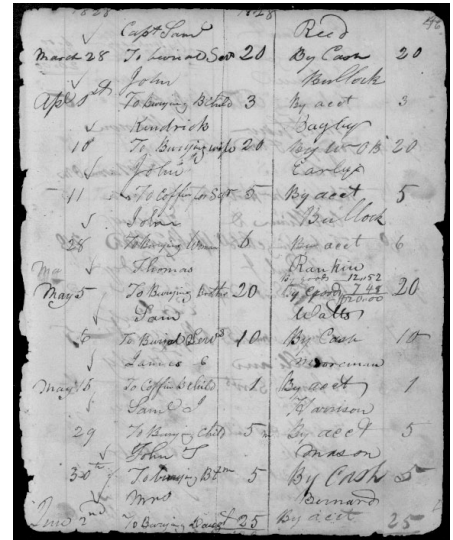 1828 1828
Capt Sam Reed
March 28 To burial Serv 20 By Cash 20
John Bullock
Apl To Burying B child 3 By acct 3
Kindrick Bagby
10 To Burying wife 20 By 20
John Earlys
11 To Coffin for Sert 5 By acct 5
John Bullock
28 To Burying 6 By acct 6
Thomas Rankin
12.52
May 5 To Burying 20 By 7.48 20
20.00
Sam Watts
6 To Burial Serv 10 By Cash 10
James C Moorman
May 15 To Coffin B child 1 By acct 1
Saml J Harrison
29 To Burying Child 5 By acct 5
John T Mason
30th To burying 5 By Cash 5
Mrs Bernard
June 2nd To Burying 25 By acct 25